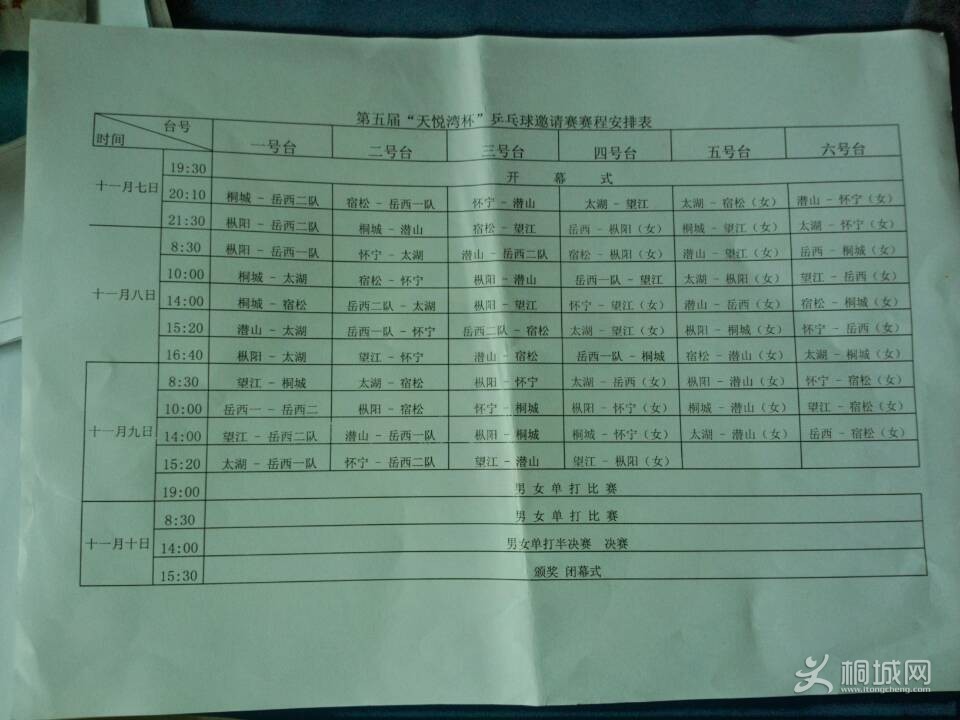 第五届“天悦湾杯”乒乓球邀请赛赛程安排表
台号 时间 一号台 二号台 三号台 四号台 五号台 六号台
十一月七日
19:30 开 幕 式
20:10 桐城 - 岳西二队 宿松 - 岳西一队 怀宁 - 潜山 太湖 - 望江 太湖 - 宿松（女） 潜山 - 怀宁（女）
21:30 枞阳 - 岳西二队 桐城 - 潜山 宿松 - 望江 岳西 - 枞阳（女） 桐城 - 望江（女） 太湖 - 怀宁（女）
十一月八日
8:30 枞阳 - 岳西一队 怀宁 - 太湖 潜山 - 岳西二队 宿松 - 枞阳（女） 潜山 - 望江（女） 岳西 - 桐城（女）
10:00 桐城 - 太湖 宿松 - 怀宁 枞阳 - 潜山 岳西一队 - 望江 太湖 - 枞阳（女） 望江 - 岳西（女）
14:00 桐城 - 宿松 岳西二队 - 太湖 枞阳 - 望江 怀宁 - 望江（女） 潜山 - 岳西（女） 宿松 - 桐城（女）
15:20 潜山 - 太湖 岳西一队 - 怀宁 岳西二队 - 宿松 太湖 - 望江（女） 枞阳 - 桐城（女） 怀宁 - 岳西（女）
16:40 枞阳 - 太湖 望江 - 怀宁 潜山 - 宿松 岳西一队 - 桐城 宿松 - 潜山（女） 太湖 - 桐城（女）
十一月九日
8:30 望江 - 桐城 太湖 - 宿松 枞阳 - 怀宁 太湖 - 岳西（女） 枞阳 - 潜山（女） 怀宁 - 宿松（女）
10:00 岳西一 - 岳西二 枞阳 - 宿松 怀宁 - 桐城 枞阳 - 怀宁（女） 桐城 - 潜山（女） 望江 - 宿松（女）
14:00 望江 - 岳西二队 潜山 - 岳西一队 枞阳 - 桐城 桐城 - 怀宁（女） 太湖 - 潜山（女） 岳西 - 宿松（女）
15:20 太湖 - 岳西一队 怀宁 - 岳西二队 望江 - 潜山 望江 - 枞阳（女）
19:00 男 女 单 打 比 赛
十一月十日
8:30 男 女 单 打 比 赛
14:00 男女单打半决赛 决赛
15:30 颁奖 闭幕式
桐城网
www.itongcheng.com